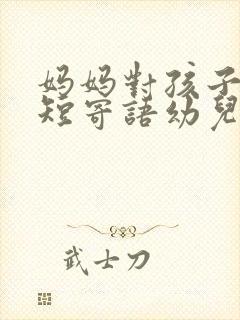 妈妈對孩子
短寄語幼兒
武士刀